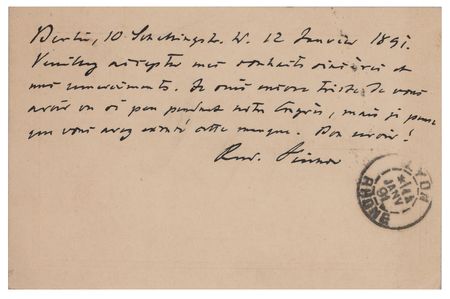 Berlin, 10 Schellingstr. W. 12 Janvier 1891.
Veuillez accepter mes souhaits sincères et
mes remerciments. Je suis encore triste de vous
avoir vu si peu pendant notre Congrès, mais je pense
que vous avez excusé cette manque. Bon encore!
Rud.
LYON
14
JANV
91
RHONE